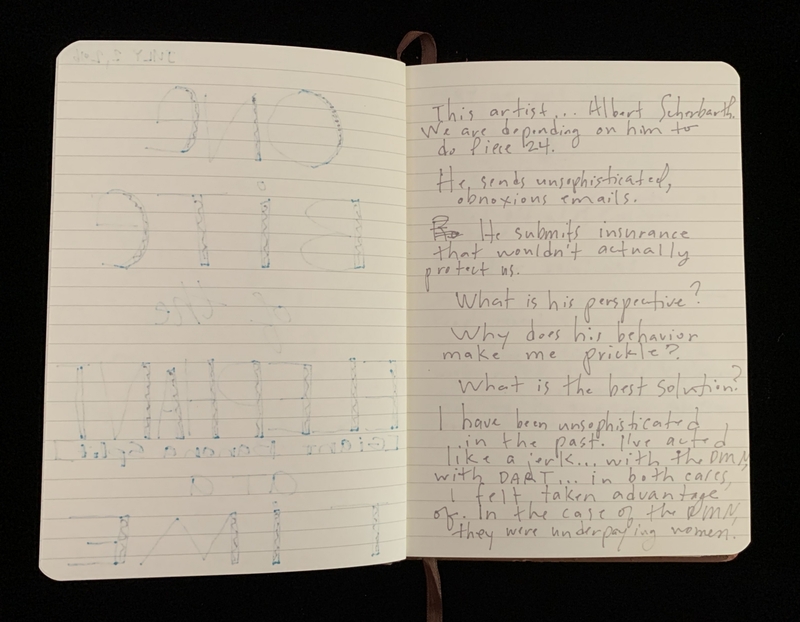 ONE
BiTE
of the
ELEPHANT
at a
TiME
This artist... Albert Scherbarth.
We are depending on him to
do Piece 24.
He sends unsophisticated,
obnoxious emails.
He submits insurance
that wouldn't actually
protect us.
What is his perspective?
Why does his behavior
make me prickle?
What is the best solution?
I have been unsophisticated
in the past. I've acted
like a jerk... with the DMN,
with DART... in both cases,
I felt taken advantage
of. In the case of the DMN,
they were underpaying women.